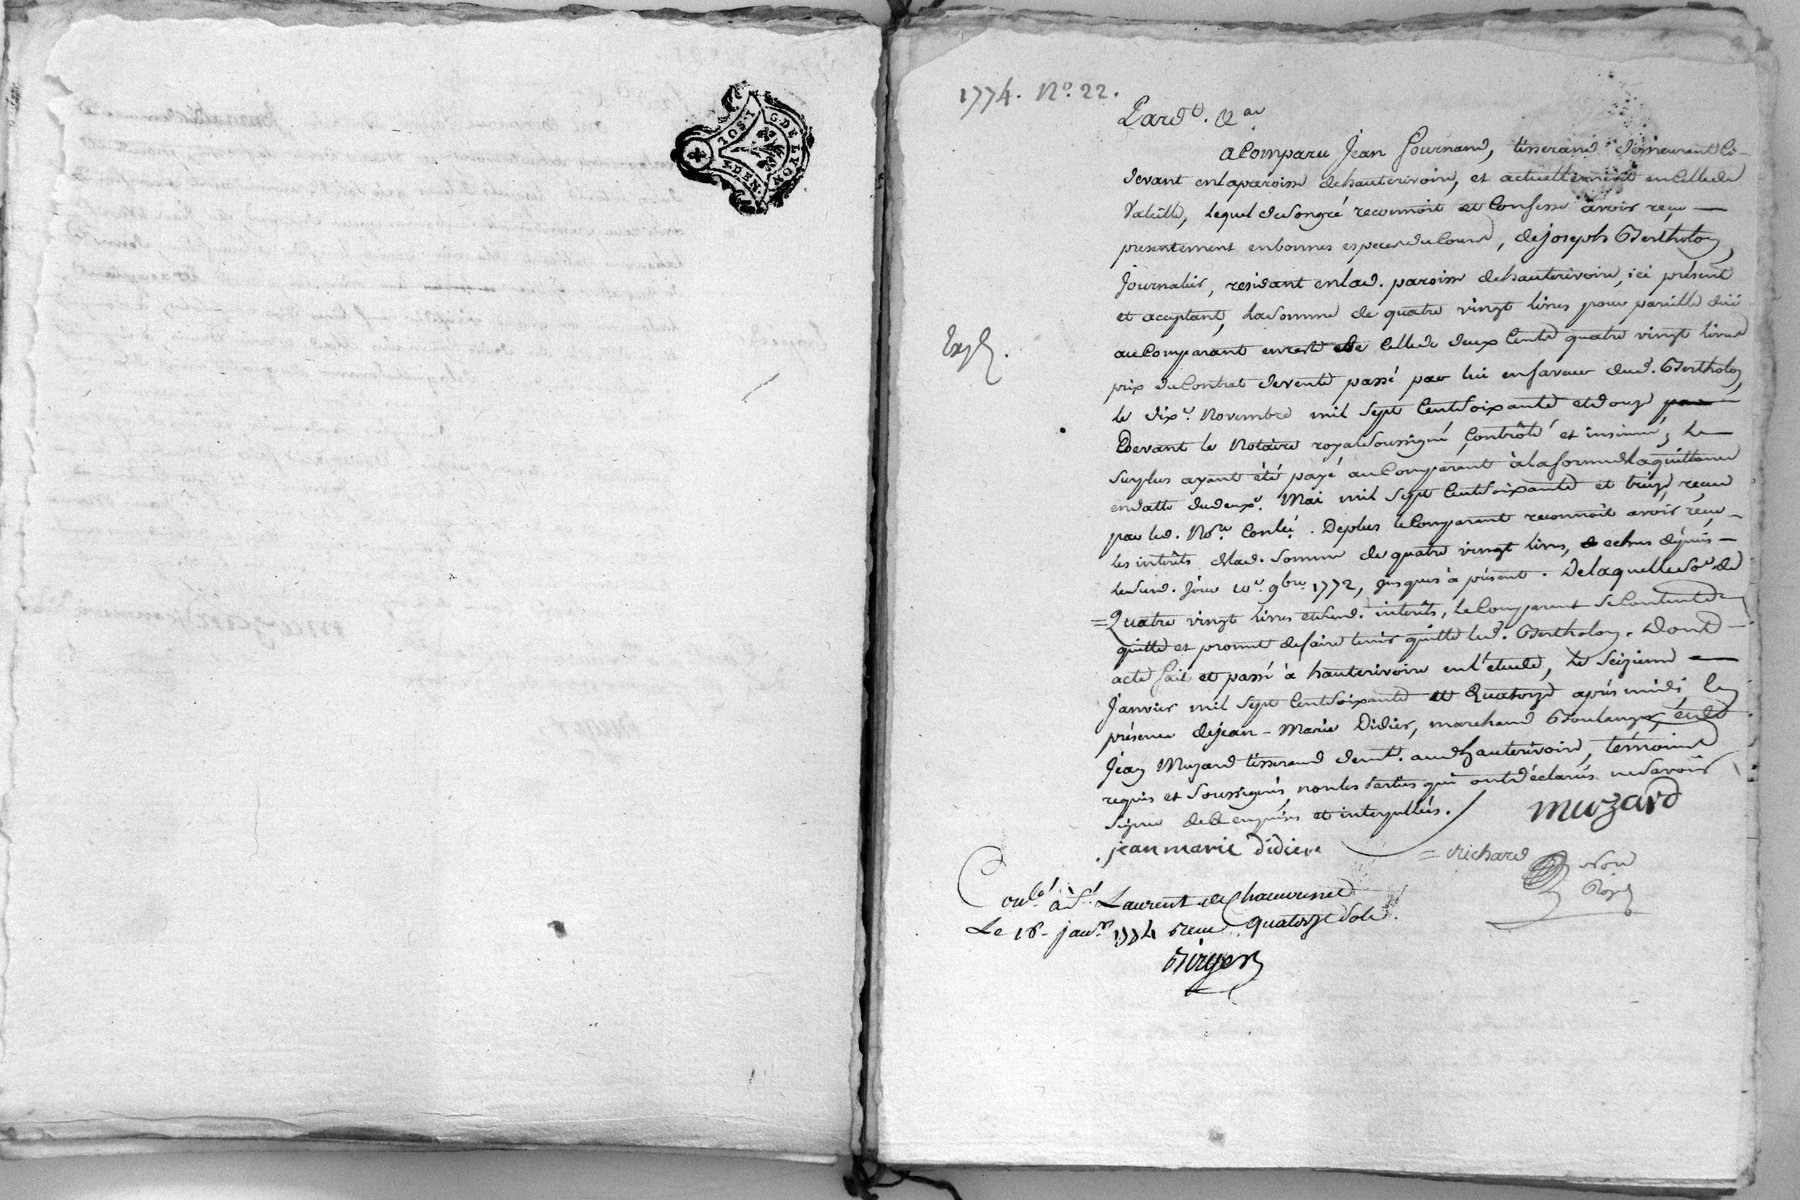 G. DE LYON
1 SOL 1
4 DEN.
1774. N.º 22.
Pard.t
a Comparu Jean Gournand, tisserand demeurant Ci-
devant en la paroisse de hauterivoire, et actuellement en Celle de
Valeille, lequel de Son gré reconnoit et Confesse avoir reçu
presentement en bonnes especes du Cours, de joseph Bertholon,
Journalier, résidant en lad. paroisse de hauterivoire, ici présent
et acceptant, la Somme de quatre vingt livres pour pareille düe
au Comparant en reste de Celle de deux Cents quatre vingt livres
prix du Contrat de vente passé par lui en faveur dud. Bertholon,
le dix.e Novembre mil Sept Cent Soixante et douze
Devant le Notaire royal Soussigné, Contrôlé et insinué, le
Surplus ayant été payé au Comparant à la forme de la quittance
en datte du deux.e Mai mil Sept Cent Soixante et treize, reçue
par led. No.re Conlée. De plus le Comparant reconnoit avoir reçu
les intérêts de lad. Somme de quatre vingt livres, echus dépuis
led. Jour 10.e 9bre 1772, jusques à présent. De laquelle So.e de
Quatre vingt livres et desd. intérêts, le Comparant Se Contente
quitte et promet de faire tenir quitte led. Bertholon. Dont
acte fait et passé à hauterivoire en l'étude, le Seizieme
Janvier mil Sept Cent Soixante et Quatorze après midi, En
présence de jean-Marie Didier, marchand Boulanger, et de
Jean Muzard tisserand demt. aud. hauterivoire, témoins
requis et Soussignés, non les Parties qui ont déclarés ne Savoir
Signer de Ce enquises et interpellées.
Expé.
muzard
jean marie didier
richard
Not.re
Roy.l
Conlé. à St. Laurent de Chamousset
Le 16 janr. 1774 Reçu quatorze Sols.
Birger